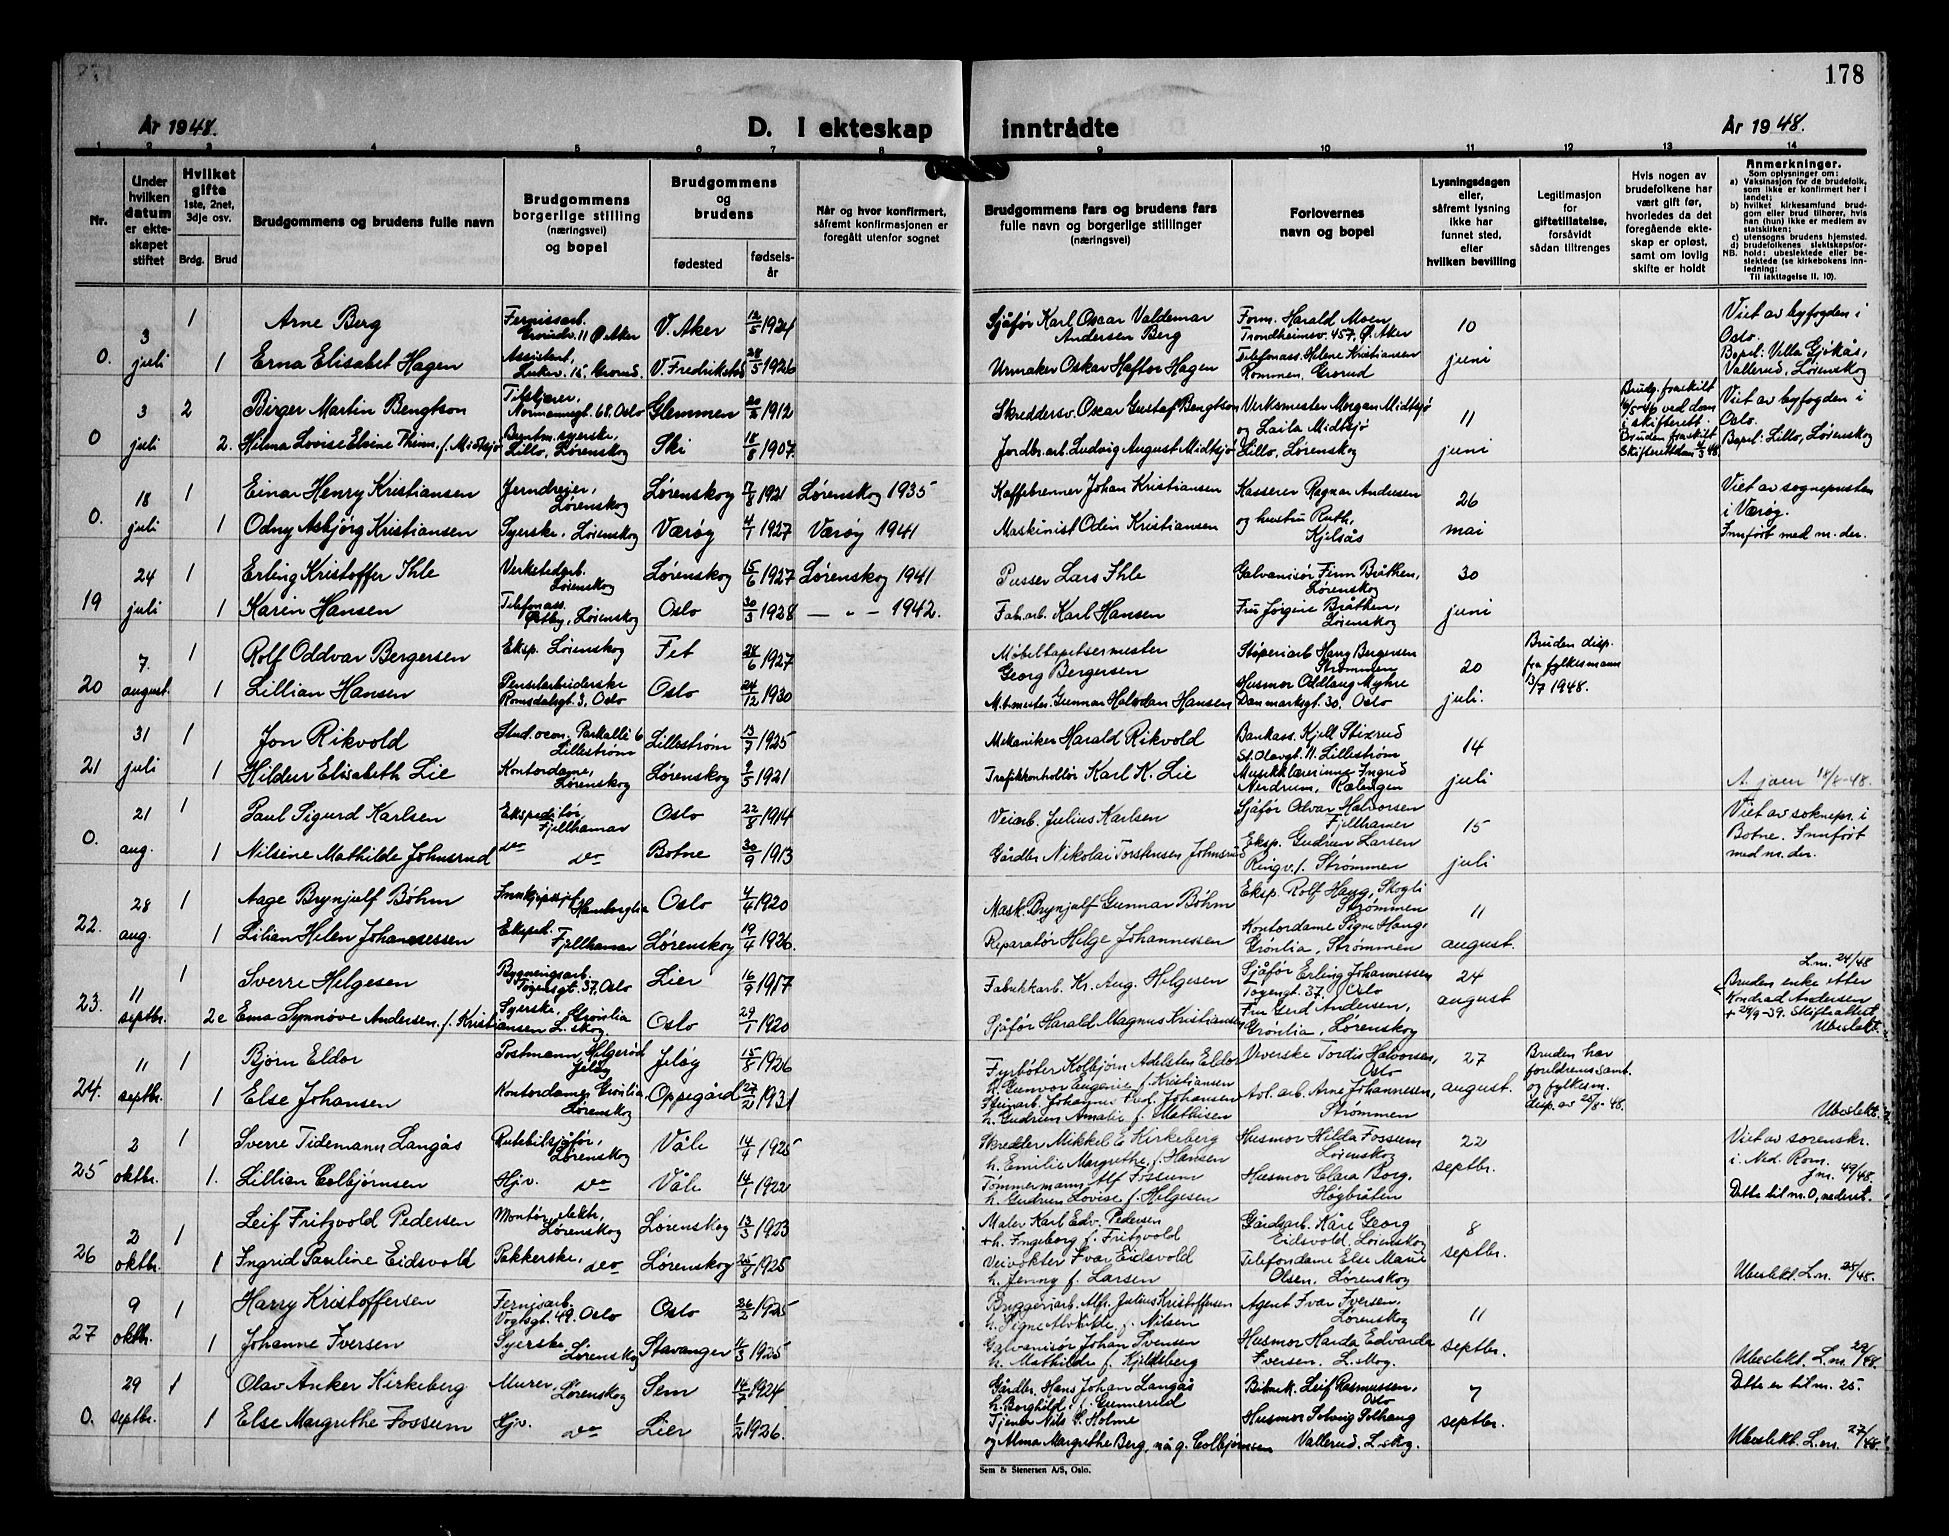 178
År 1948.
D. I ekteskap inntrådte
År 1948.
1 2 3 4 5 6 7 8 9 10 11 12 13 14
Nr.
Under hvilken datum er ekteskapet stiftet
Hvilket gifte 1ste, 2net, 3dje osv.
Brdg.
Brud
Brudgommens og brudens fulle navn
Brudgommens borgerlige stilling (næringsvei) og bopel
Brudgommens og brudens
fødested
fødselsår
Når og hvor konfirmert, såfremt konfirmasjonen er foregått utenfor sognet
Brudgommens fars og brudens fars fulle navn og borgerlige stillinger (næringsvei)
Forlovernes navn og bopel
Lysningsdagen eller, såfremt lysning ikke har funnet sted, efter hvilken bevilling
Legitimasjon for giftetillatelse, forsåvidt sådan tiltrenges
Hvis nogen av brudefolkene har vært gift før, hvorledes da det foregående ekteskap er opløst, samt om lovlig skifte er holdt
Anmerkninger.
Som oplysninger om:
a) Vaksinasjon for de brudefolk, som ikke er konfirmert her i landet;
b) hvilket kirkesamfund brudgom eller brud tilhører, hvis han (hun) ikke er medlem av statskirken;
c) utensogns brudens hjemsted.
d) brudefolkenes slektskapsforhold: ubeslektede eller beslektede (se kirkebokens innledning:
NB. Til iakttagelse II. 10).
0. 3 juli 1 Arne Berg Fernissarb. Grorudv. 11 Ø. Aker V. Aker 12/5 1924 Sjåfør Karl Oscar Valdemar Andersen Berg Form. Harald Moen Trondheimsv. 457, Ø. Aker 10 juni Viet av byfogden i Oslo.
1 Erna Elisabet Hagen Assistent, 15 Grorud. V. Fredrikstad 28/5 1926 Urmaker Oskar Haftor Hagen Telefonass. Helene Kristiansen Rommen, Grorud Bopel: Villa Gjøkås, Vallerud, Lørenskog
0 3 juli 2 Birger Martin Bengtson Normannsgt 68, Oslo Glemmen 1912 Skreddersv. Oscar Gustaf Bengtson Verksmester Morgan Midtsjø og Laila Midtsjø 11 juni Brudg. fraskilt 5-46 ved dom i skifterett. Viet av byfogden i Oslo.
2. Hilma Lovise Elvine Thinn, f. Midtsjø syerske, Lillo, Lørenskog Ski 18/8 1907. Jordbr.arb. Ludvig August Midtsjø Lillo, Lørenskog Bruden fraskilt Bopel: Lillo, Lørenskog
0. 18 juli 1 Einar Henry Kristiansen Jerndreier, Lørenskog Lørenskog 7/8 1921 Lørenskog 1935 Kaffebrenner Johan Kristiansen Kasserer Ragnar Andresen 26 mai Viet av sognepresten i Værøy.
1 Odny Asbjørg Kristiansen Syerske, Lørenskog Værøy 4/1 1927 Værøy 1941 Maskinist Odin Kristiansen og hustru Ruth, Kjelsås Innført med m. der.
19 24 juli 1 Erling Kristoffer Ihle Verkstedarb. Lørenskog Lørenskog 15/6 1927 Lørenskog 1941 Pusser Lars Ihle Galvanisør Finn Bråthen, Lørenskog 30 juni
1 Karin Hansen Telefonass. Østby, Lørenskog Oslo 30/3 1928 — " — 1942. Fab.arb. Karl Hansen Fru Jørgine Bråthen, Lørenskog
20 7 august. 1 Rolf Oddvar Bergersen Eksp. Lørenskog Fet 28/6 1927 Møbeltapetsermester Georg Bergersen Støperiarb Hans Bergersen Strømmen 20 juli. Bruden disp. fra fylkesmann 13/7 1948.
1 Lillian Hansen Penselarbeiderske Romsdalsgt. 3, Oslo Oslo 24/12 1930 M.tmester. Gunnar Halvdan Hansen Husmor Oddlaug Myhre Danmarksgt. 30. Oslo
21 31 juli 1 Jon Rikvold Stud. oecon. Parkalle 6 Lillestrøm Lillestrøm 13/7 1925 Mekaniker Harald Rikvold Bankass. Kjell Stixrud St. Olavgt. 11. Lillestrøm 14 juli
1 Hildur Elisabeth Lie Kontordame, Lørenskog Lørenskog 9/5 1921 Trafikkontrollør Karl K. Lie Musikklærerinne Ingrid Nerdrum, Rælingen 18/8-48.
0. 21 aug. 1 Paul Sigurd Karlsen Ekspeditør, Fjellhamar Oslo 22/8 1914 Veiarb. Julius Karlsen Sjåfør Odvar Halvorsen Fjellhamar 15 juli Viet av soknepr. i Botne. Innført med m. der.
1 Nilsine Mathilde Johnsrud do do Botne 30/9 1913 Gårdbr. Nikolai Torstensen Johnsrud Eksp. Gudrun Larsen Ringv. 1. Strømmen
22. 28 aug. 1 Aage Brynjulf Bøhm Innkjøpssjef Hamborglia Oslo 4/4 1920 Mask. Brynjulf Gunnar Bøhm Eksp. Rolf Haug, Skogli Strømmen 11 august.
1 Lilian Helen Johannessen Eksped. Fjellhamar Lørenskog 19/4 1926. Reparatør Helge Johannessen Kontordame Signe Haug, Grønlia, Strømmen
23. 11 septbr. 1 Sverre Helgesen Bygningsarb. Tøyengt. 37, Oslo Lier 16/9 1917 Fabrikkarb. Kr. Aug. Helgesen Sjåfør Erling Johannessen Tøyengt. 37. Oslo 24 august L.m. 24/48 Bruden enke etter Kondrad Andersen
2e Erna Synnøve Andersen, f. Kristiansen Syerske, Grønlia L. skog. Oslo 29/1 1920 Sjåfør Harald Magnus Kristiansen Fru Gerd Andersen, Grønlia, Lørenskog + 29/9-39. Skifteattest. Ubeslekt.
24. 11 septbr. 1 Bjørn Eldor Postmann Helgerød Jeløy Jeløy 15/8 1926 Fyrbøter Kolbjørn Adelsten Eldor h. Gunvor Eugenie f. Kristiansen Veverske Tordis Halvorsen, Oslo 27 august. Bruden har foreldrens samt. og fylkesm. disp. av 25/8-48.
1 Else Johansen Kontordame, Grønlia, Lørenskog Oppegård 27/2 1931 Johannes Karl Johansen h. Gudrun Amalie f. Mathisen Avl. arb. Arne Johannesen, Strømmen Ubeslekt.
25 2 oktbr. 1 Sverre Tidemann Langås Rutebilsjåfør, Lørenskog Våle 14/4 1925 Skredder Mikkel E Kirkeberg h. Emilie Margrethe f. Hansen Husmor Hilda Fossum Lørenskog 22 septbr. Viet av sorenskr. i Ned. Rom. Jnr. 49/48.
1. Lillian Colbjørnsen Hjv. do Våle 14/1 1922 Tømmermann Alf Fossum h. Gudrun Lovise f. Helgesen Husmor Clara Borg, Høybråten Dette til nr. 0, nederst.
26 2 oktbr. 1 Leif Fritzvold Pedersen Montør, elektr. Lørenskog Lørenskog 13/3 1923 Maler Karl Edv. Pedersen +h. Ingeborg f. Fritzvold Gårdsarb. Kåre Georg Eidsvold, Lørenskog 8 septbr.
1 Ingrid Pauline Eidsvold Pakkerske, do Lørenskog 25/8 1925 Veivokter Ivar Eidsvold h. Jenny f. Larsen Telefondame Else Marie Olsen, Lørenskog Ubeslekt. L.m. 25/48.
27 9 oktbr. 1 Harry Kristoffersen Fernisarb. Vogtsgt. 49. Oslo Oslo 26/2 1925 Bryggeriarb. Alf. Julius Kristoffersen h. Signe f. Nilsen Agent Ivar Iversen, Lørenskog 11 septbr.
1 Johanne Iversen Syerske, Lørenskog Stavanger 1925 Galvanisør Johan Svensen h. Mathilde f. Kjeldsberg Husmor Harda Edvarda Iversen. L. skog. Ubeslekt. L.m. 29/48.
0. 29 septbr. 1 Olav Anker Kirkeberg Murer, Lørenskog Sem 14/7 1924 Gårdbr. Hans Johan Langås h. Borghild f. Gunnerød Bilmek. Leif Rasmussen, Oslo 7 septbr. Dette er til nr. 25.
1 Else Margrethe Fossum Hjv. do Lier 1/2 1926. Tjener Nils G. Holme og Alma Margrethe Berg, nå g. Colbjørnsen Husmor Solveig Solhaug Vallerud, L. skog. Ubeslekt. L.m. 27/48.
Sem & Stenersen A/S, Oslo.